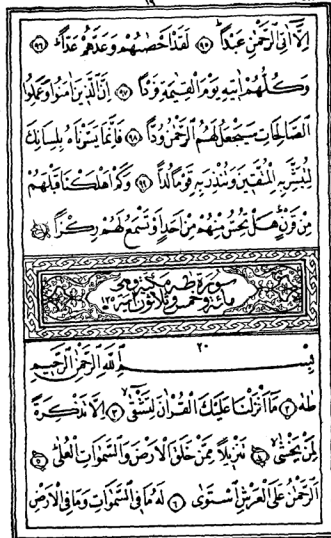 إِلَّا آتِي الرَّحْمٰنِ عَبْدًا ﴿٩٥﴾ لَقَدْ أَحْصٰىهُمْ وَعَدَّهُمْ عَدًّا ﴿٩٦﴾
وَكُلُّهُمْ اٰتِيهِ يَوْمَ الْقِيٰمَةِ فَرْدًا ﴿٩٧﴾ إِنَّ الَّذِينَ اٰمَنُوا وَعَمِلُوا
الصَّالِحَاتِ سَيَجْعَلُ لَهُمُ الرَّحْمٰنُ وُدًّا ﴿٩٨﴾ فَإِنَّمَا يَسَّرْنَاهُ بِلِسَانِكَ
لِتُبَشِّرَ بِهِ الْمُتَّقِينَ وَتُنْذِرَ بِهِ قَوْمًا لُدًّا ﴿٩٩﴾ وَكَمْ أَهْلَكْنَا قَبْلَهُمْ
مِنْ قَرْنٍ هَلْ تُحِسُّ مِنْهُمْ مِنْ أَحَدٍ أَوْ تَسْمَعُ لَهُمْ رِكْزًا
سورة طه مكية وهى
مائة وخمس وثلاثون اية ١٣٥
٢٠
بِسْمِ اللّٰهِ الرَّحْمٰنِ الرَّحِيمِ
طٰهٰ ﴿٢﴾ مَا أَنْزَلْنَا عَلَيْكَ الْقُرْاٰنَ لِتَشْقٰى ﴿٣﴾ إِلَّا تَذْكِرَةً
لِمَنْ يَخْشٰى ﴿٤﴾ تَنْزِيلًا مِمَّنْ خَلَقَ الْأَرْضَ وَالسَّمٰوَاتِ الْعُلٰى ﴿٥﴾
الرَّحْمٰنُ عَلَى الْعَرْشِ اسْتَوٰى ﴿٦﴾ لَهُ مَا فِي السَّمٰوَاتِ وَمَا فِي الْأَرْضِ